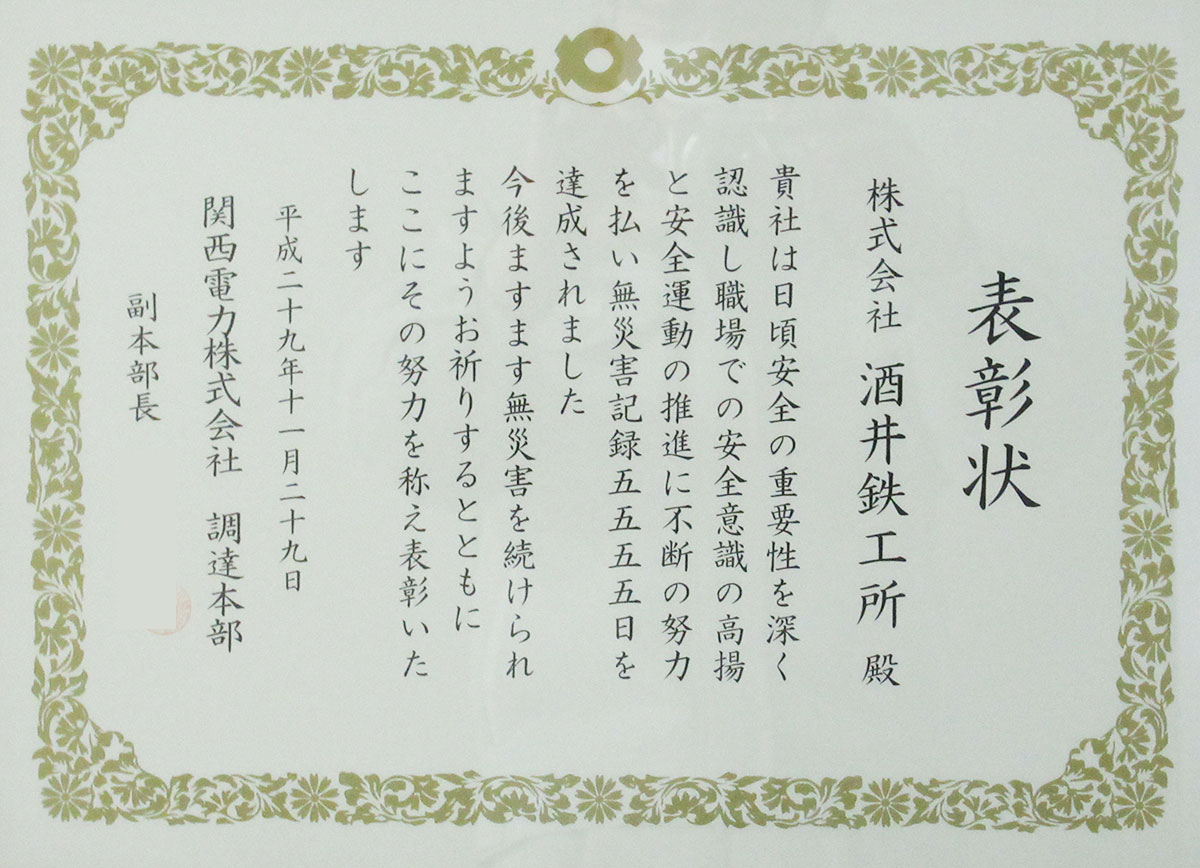 表彰状
株式会社 酒井鉄工所 殿
貴社は日頃安全の重要性を深く
認識し職場での安全意識の高揚
と安全運動の推進に不断の努力
を払い無災害記録五五五五日を
達成されました
今後ますます無災害を続けられ
ますようお祈りするとともに
ここにその努力を称え表彰いた
します
平成二十九年十一月二十九日
関西電力株式会社 調達本部
副本部長